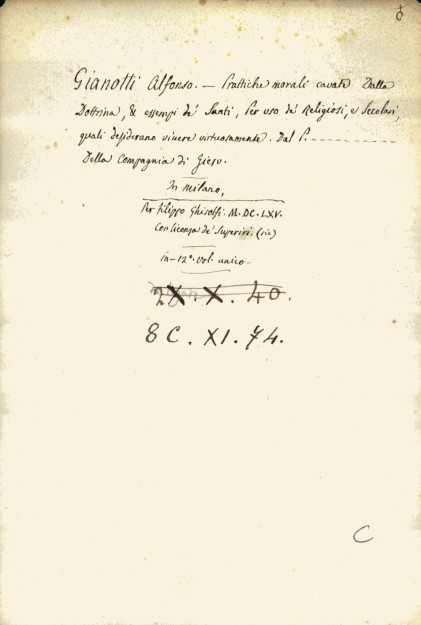 Gianotti Alfonso. — Prattiche morali cavate Dalla
Dottrina, & essempi de' Santi, Per uso de' Religiosi, e Secolari,
quali desiderano vivere virtuosamente. Dal P. ----------
Della Compagnia di Giesu.
In Milano,
Per Filippo Ghisolfi. M.DC.LXV.
Con licenza de' Superiri (sic)
in-12°. vol. unico
X. 40.
8 C. XI. 74.
C